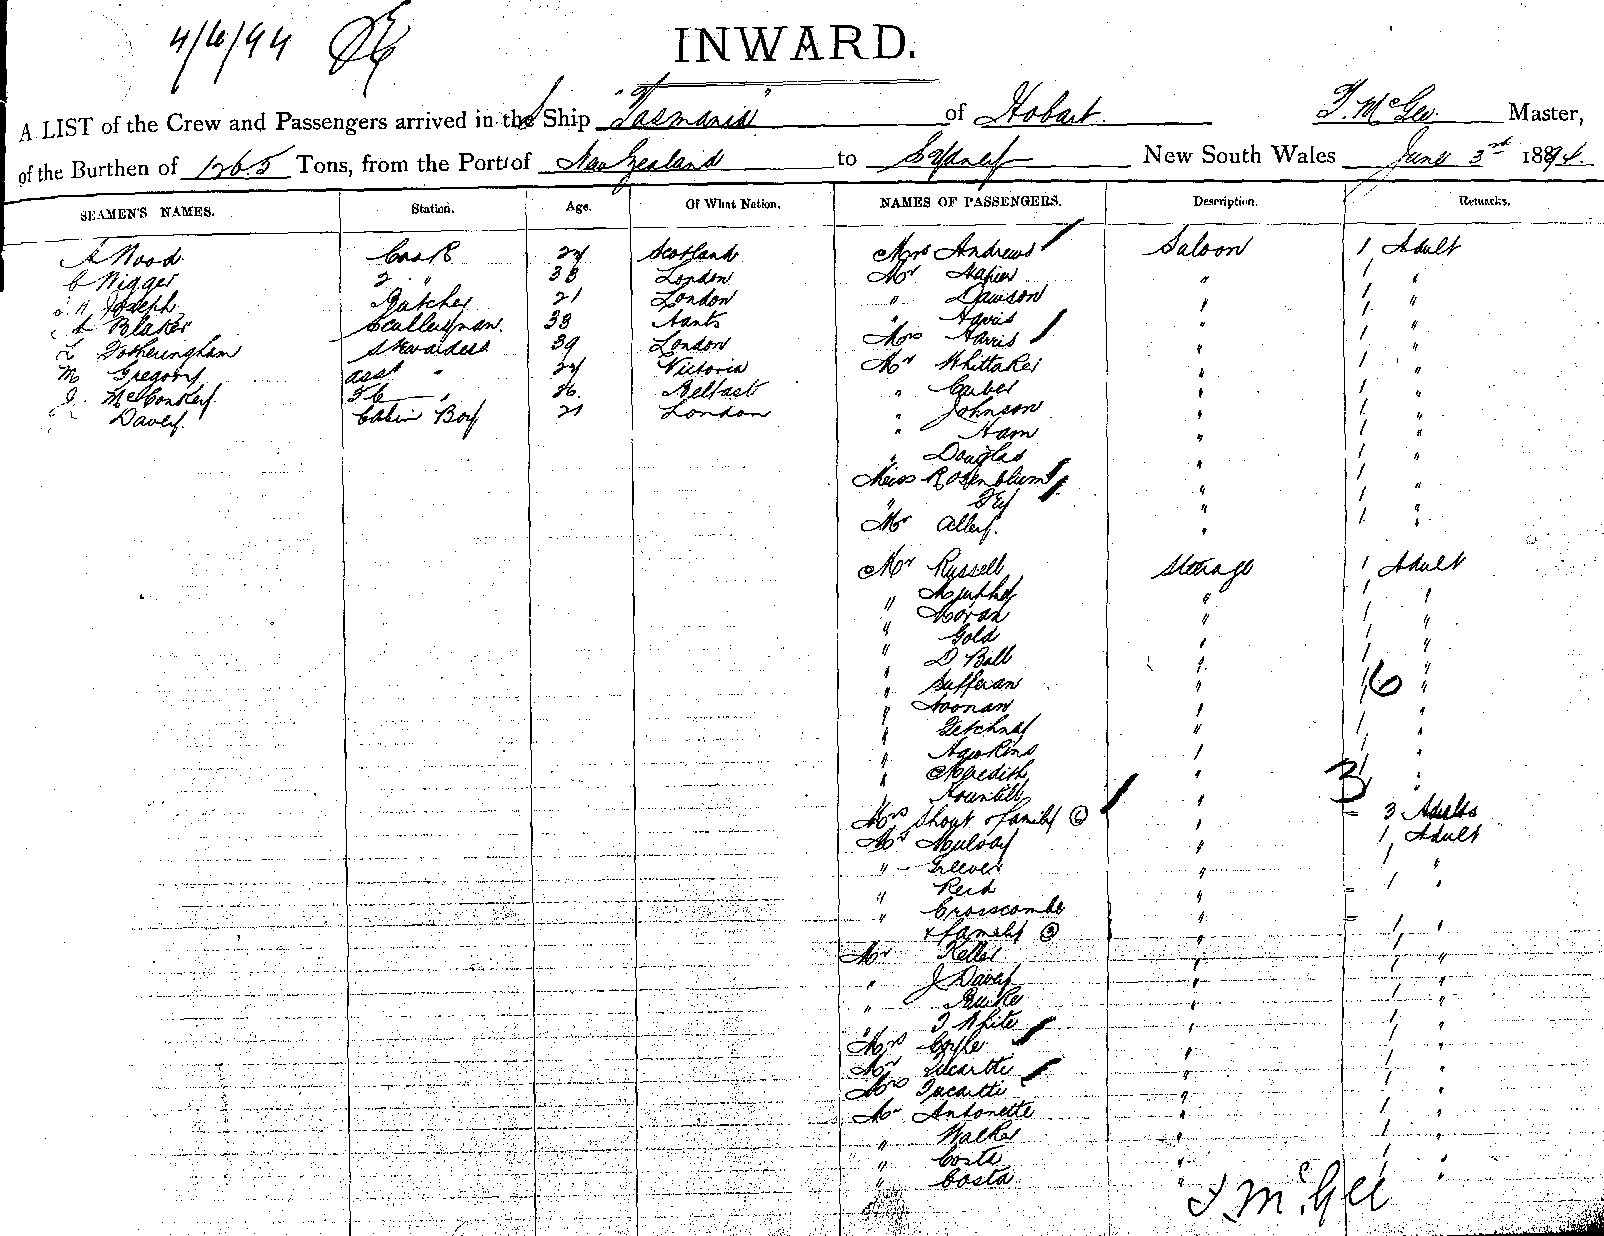 4/6/94
INWARD.
A LIST of the Crew and Passengers arrived in the S Ship "Tasmania" of Hobart. T. McGee. Master,
of the Burthen of 1265 Tons, from the Port of New Zealand to Sydney New South Wales June 3rd 1894.
SEAMEN'S NAMES. Station. Age. Of What Nation. NAMES OF PASSENGERS. Description. Remarks.
A Wood Cook 24 Scotland Mrs Andrews Saloon 1 Adult
C Wigger 2 " 38 London Mr Napier " 1 "
Joseph Butcher 21 London " Dawson " 1 "
A Blaker Sculleryman. 38 Hants " Harris " 1 "
L Fotheringham Stewardess 39 London Mrs Harris " 1 "
M Gregory asst " 24 Victoria Mr Whittaker " 1 "
J. McConkey " 36. Belfast " " 1 "
Davey. Cabin Boy 21 London " Johnson " 1 "
" Ham " 1 "
" Douglas " 1 "
Miss Rosenblum " 1 "
" " 1 "
Mr Allen. " 1 "
Mr Russell Steerage 1 Adult
" Murphy " 1 "
" Moran " 1 "
" Gold " 1 "
" D Ball " 1 "
" Sufferan " 1 6 "
" Noonan " 1 "
" " 1 "
" Hawkins " 1 "
" Meredith " 3 1 "
" "
Mrs Shout & family 6 " 3 Adults
Mr Mulvay " 1 Adult
" Greever " 1 "
" Reid " 1 "
" Crosscombe "
& family 3 " 1 "
Mr Keller " 1 "
" J Davey " 1 "
" Burke " 1 "
" T White " 1 "
Mrs Coyle " 1 "
Mr Lucartti " 1 "
Mrs Lucartti " 1 "
Mr Antonette " 1 "
" Walker " 1 "
" Costa " 1 "
" Costa "
T. McGee